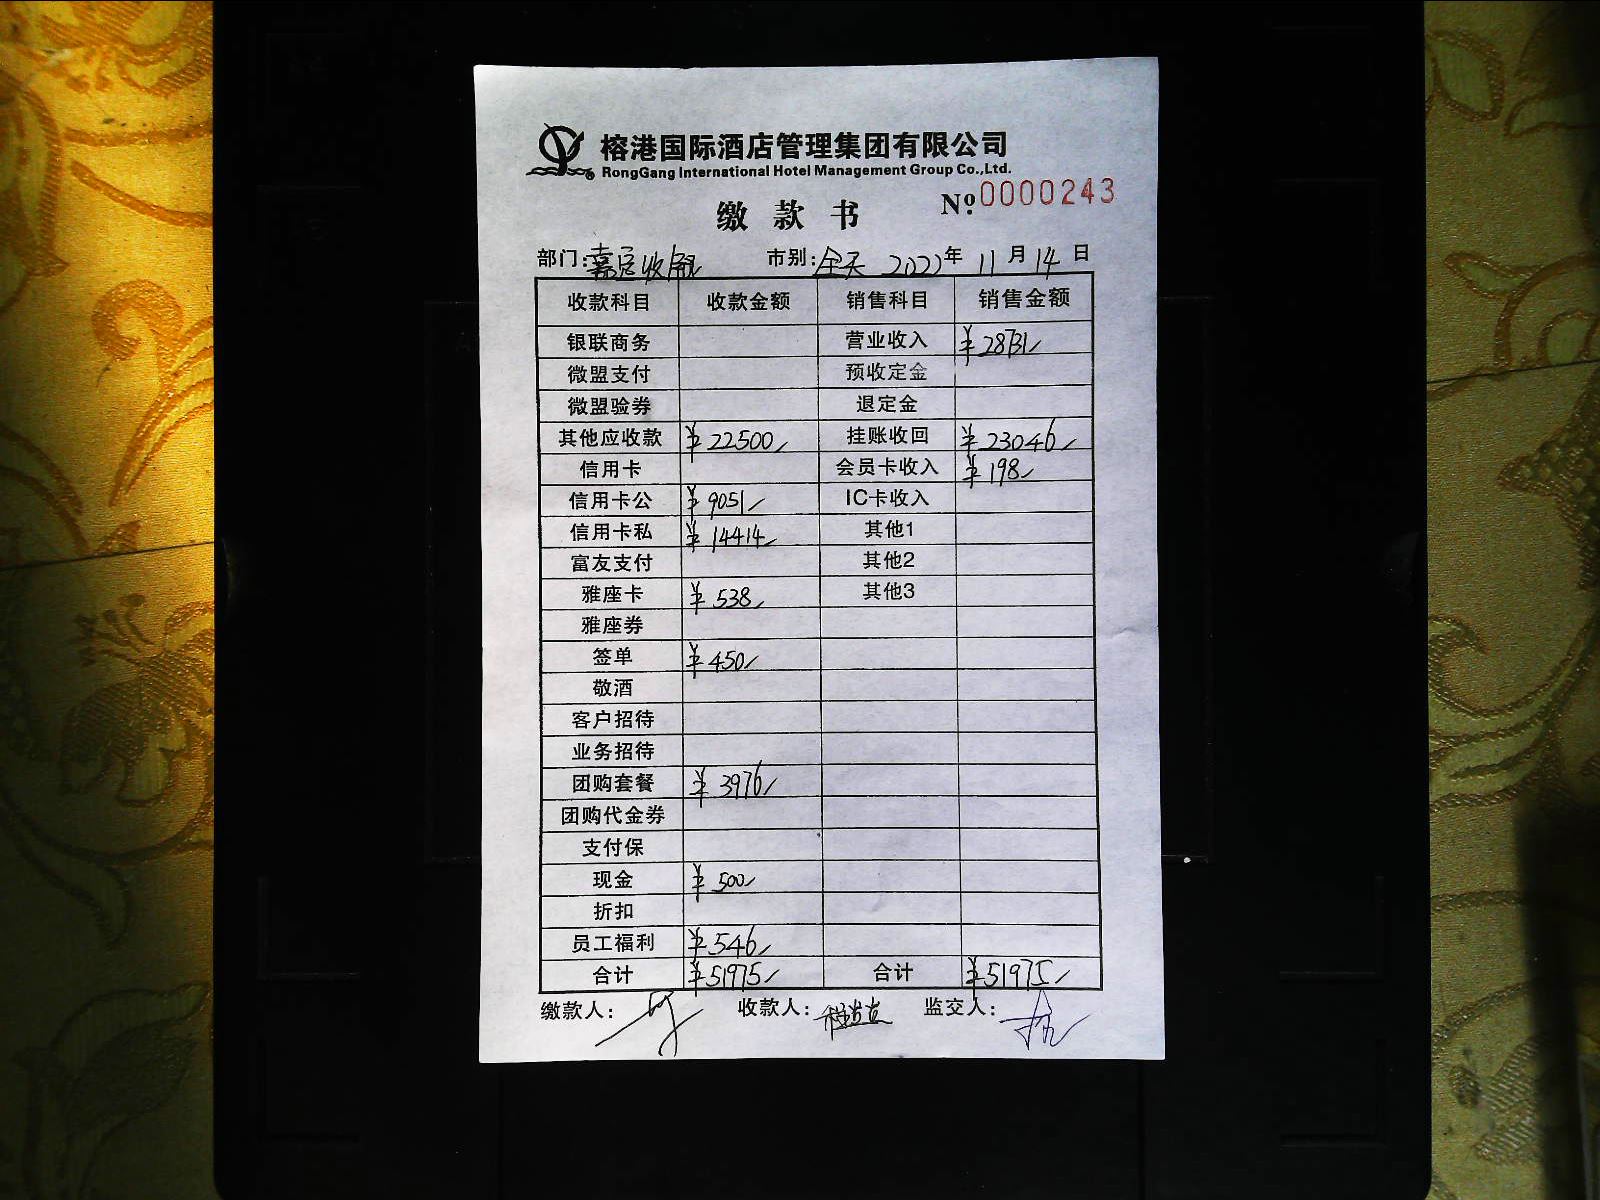 榕港国际酒店管理集团有限公司
RongGang International Hotel Management Group Co.,Ltd.
缴款书 №.0000243
部门:嘉 收银 市别:全天 2022年 11月 14日
收款科目 收款金额 销售科目 销售金额
银联商务 营业收入 ¥28731
微盟支付 预收定金
微盟验券 退定金
其他应收款 ¥22500 挂账收回 ¥23046
信用卡 会员卡收入 ¥198
信用卡公 ¥9051 IC卡收入
信用卡私 ¥14414 其他1
富友支付 其他2
雅座卡 ¥538 其他3
雅座券
签单 ¥450
敬酒
客户招待
业务招待
团购套餐 ¥3976
团购代金券
支付保
现金 ¥500
折扣
员工福利 ¥546
合计 ¥51975 合计 ¥51975
缴款人: 收款人: 监交人: